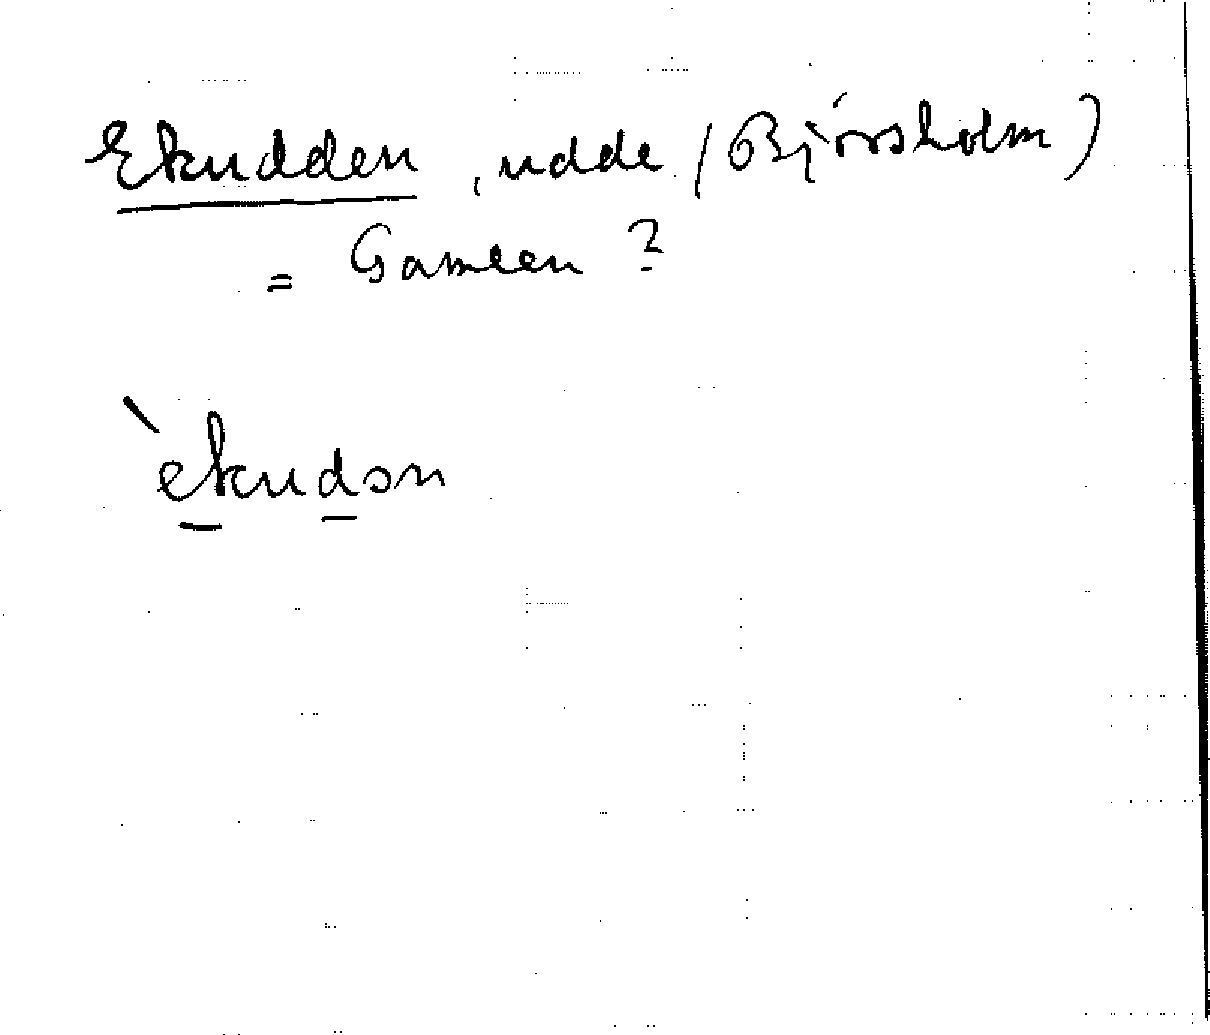 Ekudden, udde (Björsholm)
= Gamlen ?
`ekudən